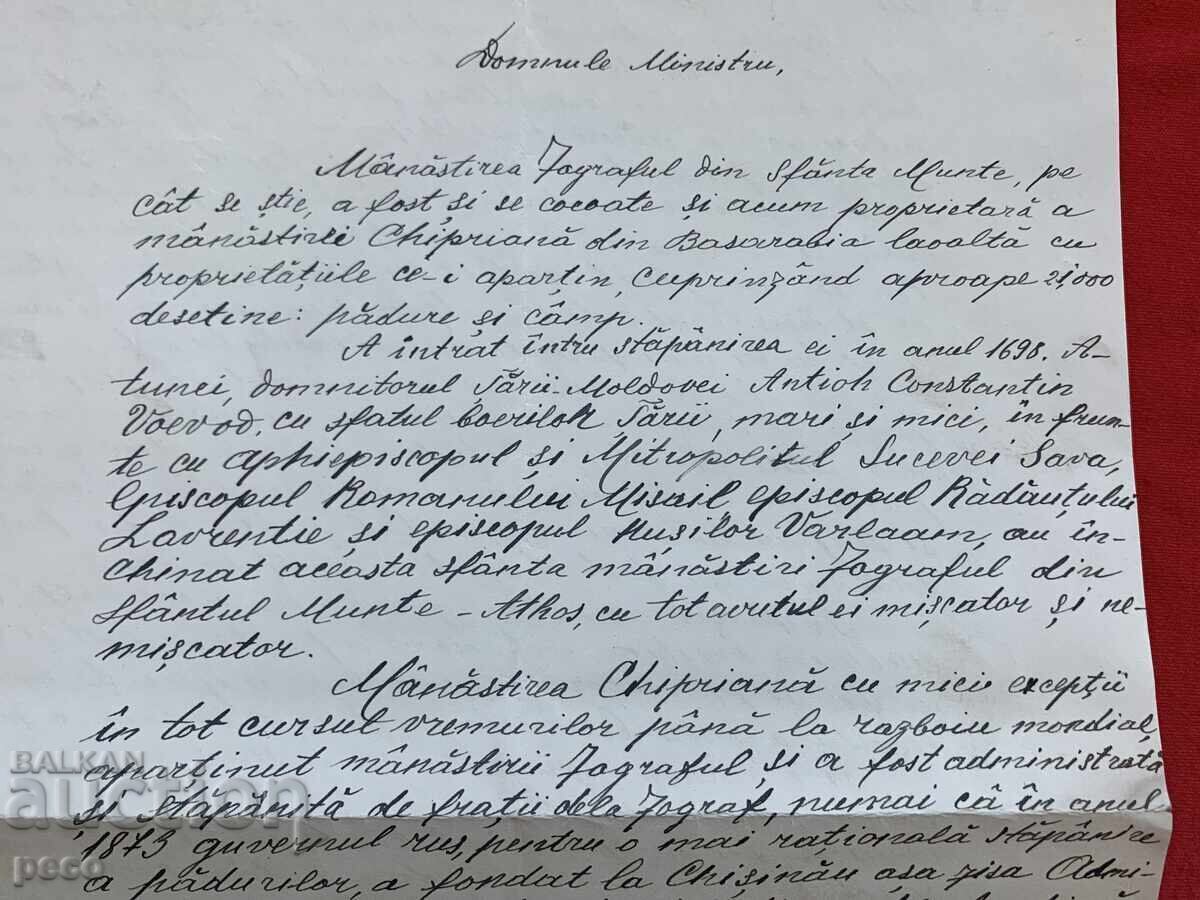 Domnule Ministru,
Mânăstirea Zograful din Sfânta Munte, pe
cât se știe, a fost și se cocoate și acum proprietară a
mânăstirei Chipriană din Basarabia laoaltă cu
proprietățiile ce-i aparțin, cuprinzând aproape 21,000
desetine: pădure și câmp.
A intrat întru stăpânirea ei în anul 1698. A-
tunci, domnitorul Țării-Moldovei Antioh Constantin
Voevod, cu sfatul boerilor Țării, mari și mici, în frun-
te cu aphiepiscopul și Mitropolitul Sucevei Sava,
Episcopul Romanului Misail, episcopul Rădăuțului
Lavrentie și episcopul Hușilor Varlaam, au în-
chinat aceasta sfânta mânăstiri Zograful din
Sfântul Munte - Athos, cu tot avutul ei mișcator și ne-
mișcator.
Mânăstirea Chipriană cu mici excepții
în tot cursul vremurilor până la razboiu mondial,
aparținut mânăstirii Zograful și a fost administrată
și stăpânită de frații dela Zograf, numai că în anul
1873 guvernul rus, pentru o mai rațională stăpânire
a pădurilor, a fondat la Chișinău așa zisa Admi-
BALKAN
auction
peco